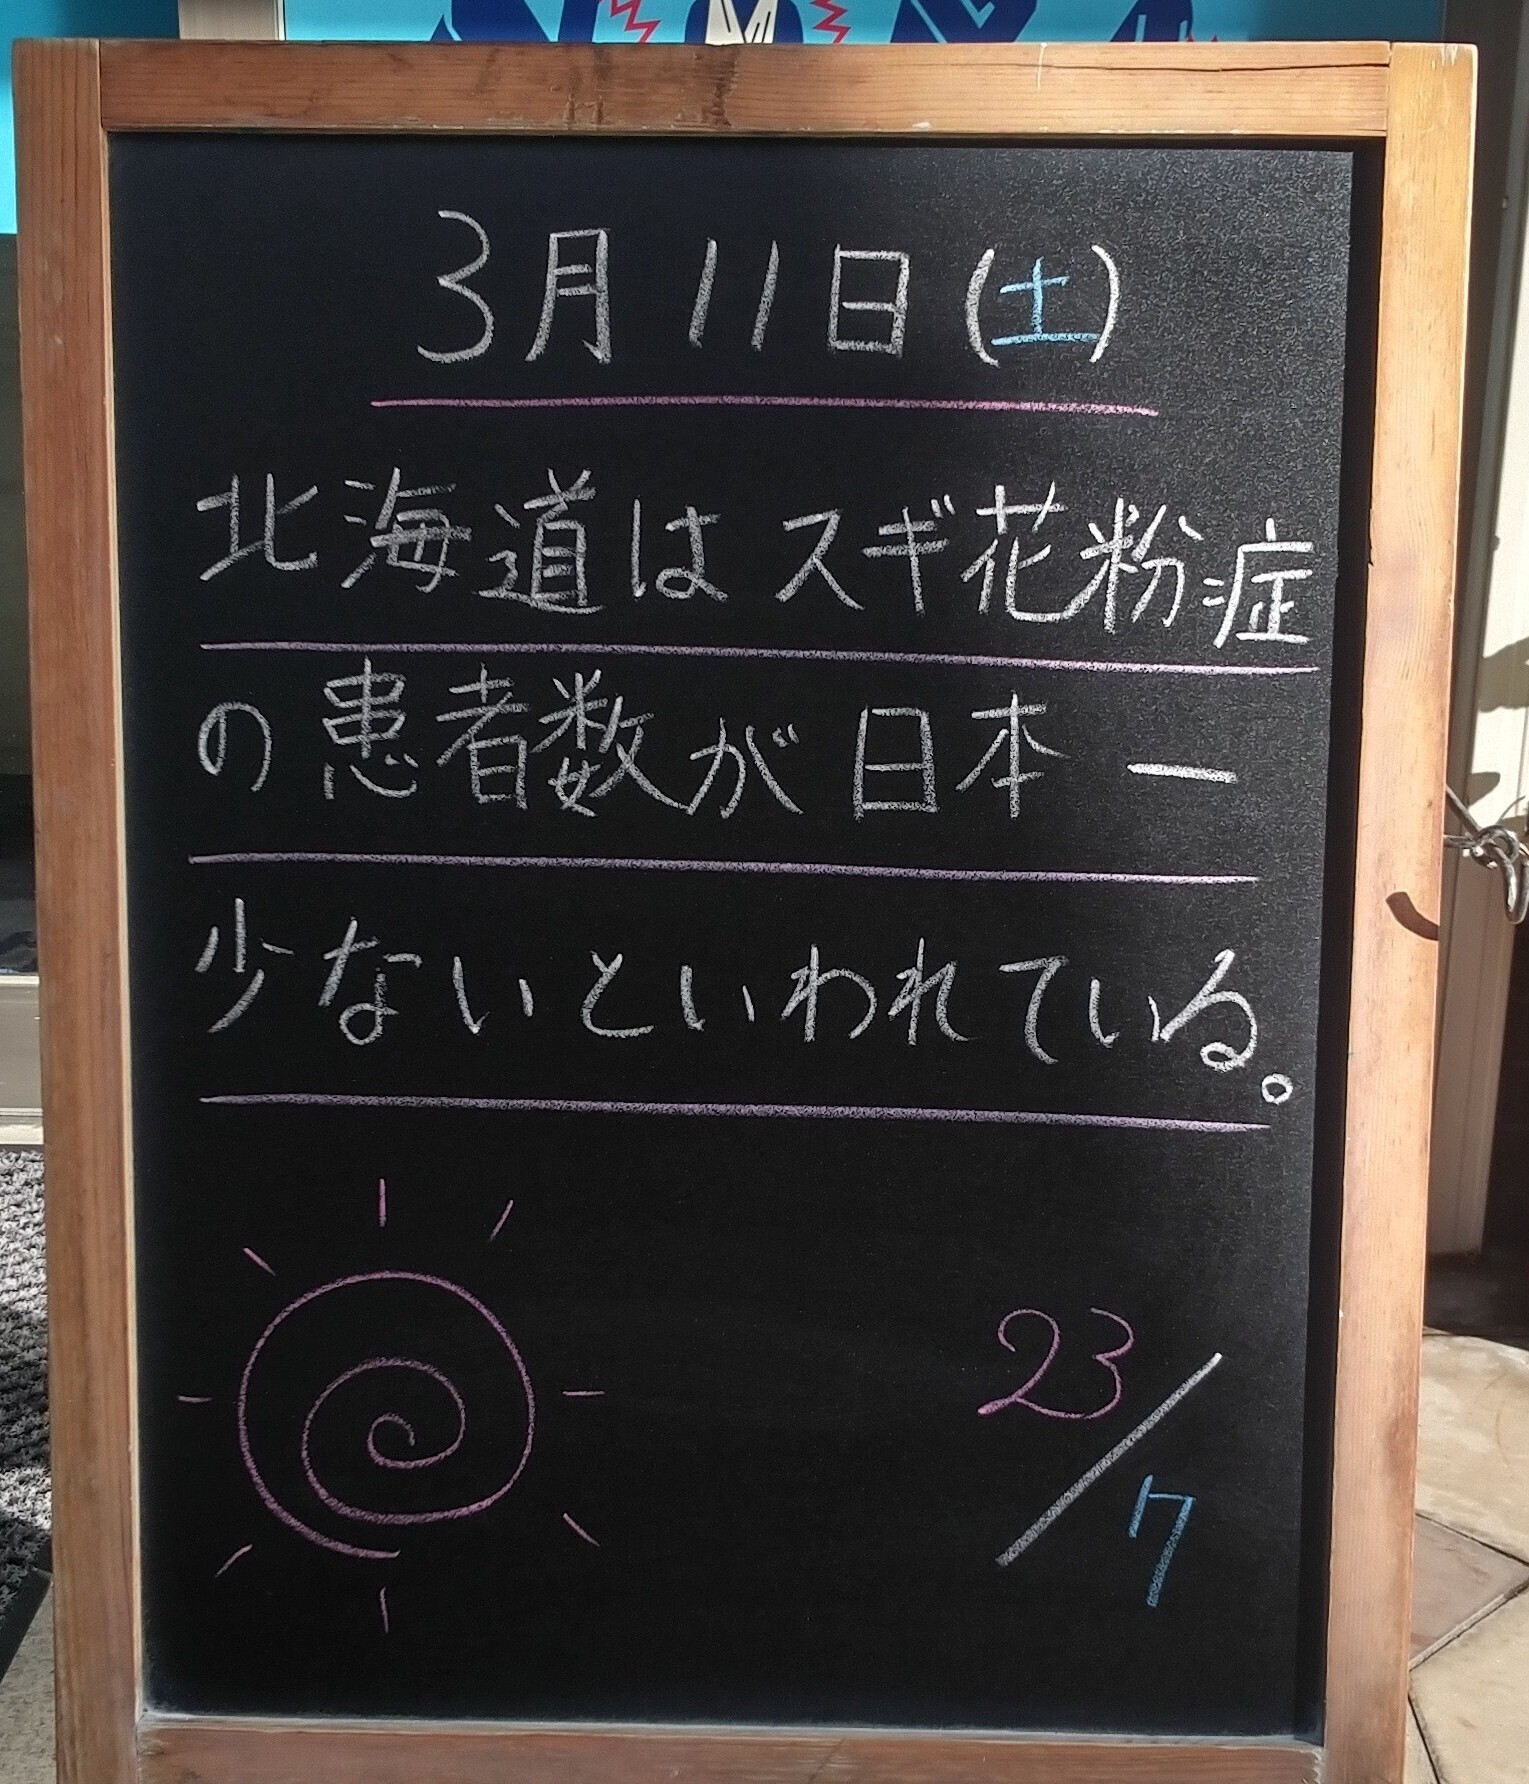 3月11日(土)
北海道はスギ花粉症
の患者数が日本一
少ないといわれている。
23/7